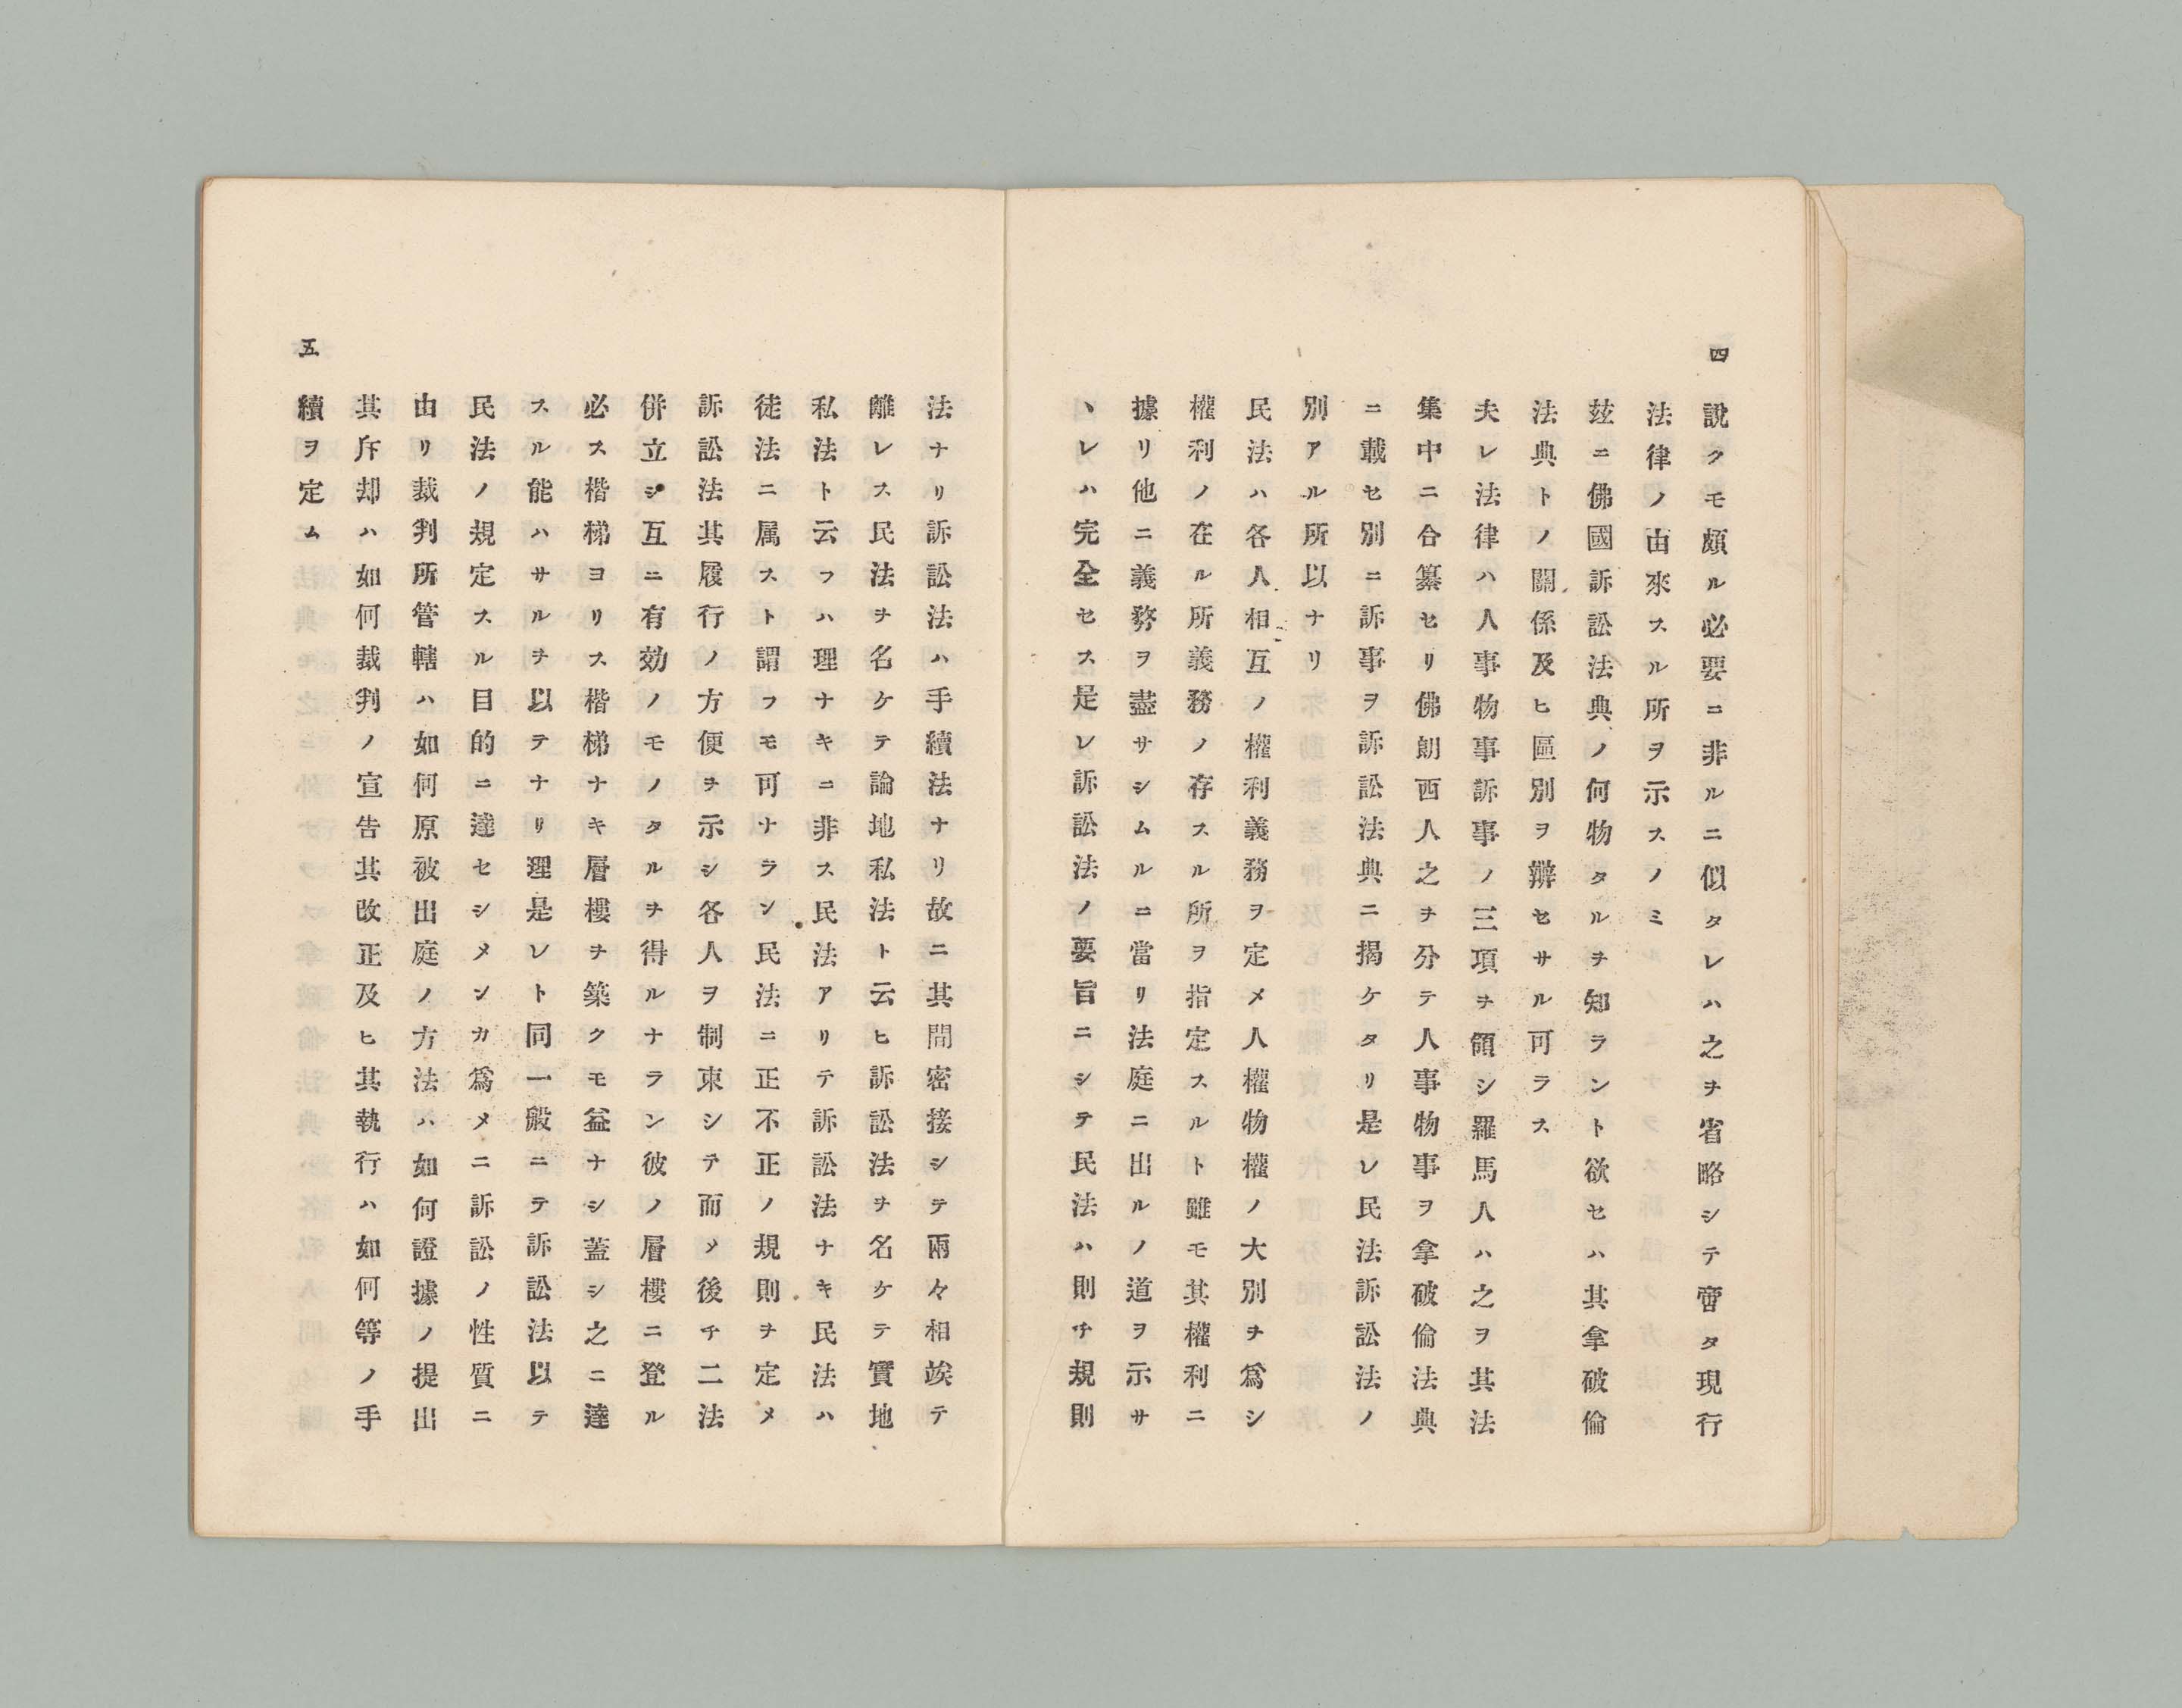 四
說クモ頗ル必要ニ非ルニ似タレハ之ヲ省略シテ啻タ現行
法律ノ由來スル所ヲ示スノミ
玆ニ佛國訴訟法典ノ何物タルヲ知ラント欲セハ其拿破倫
法典トノ關係及ヒ區別ヲ辯セサル可ラス
夫レ法律ハ人事物事訴事ノ三項ヲ領シ羅馬人ハ之ヲ其法
集中ニ合纂セリ佛朗西人之ヲ分テ人事物事ヲ拿破倫法典
ニ載セ別ニ訴事ヲ訴訟法典ニ揭ケタリ是レ民法訴訟法ノ
別アル所以ナリ
民法ハ各人相互ノ權利義務ヲ定メ人權物權ノ大別ヲ爲シ
權利ノ在ル所義務ノ存スル所ヲ指定スルト雖モ其權利ニ
據リ他ニ義務ヲ盡サシムルニ當リ法庭ニ出ルノ道ヲ示サ
丶レハ完全セス是レ訴訟法ノ要旨ニシテ民法ハ則チ規則
法ナリ訴訟法ハ手續法ナリ故ニ其間密接シテ兩々相竢テ
離レス民法ヲ名ケテ論地私法ト云ヒ訴訟法ヲ名ケテ實地
私法ト云フハ理ナキニ非ス民法アリテ訴訟法ナキ民法ハ
徒法ニ属スト謂フモ可ナラン民法ニ正不正ノ規則ヲ定メ
訴訟法其履行ノ方便ヲ示シ各人ヲ制束シテ而メ後チ二法
併立シ互ニ有効ノモノタルヲ得ルナラン彼ノ層樓ニ登ル
必ス楷梯ヨリス楷梯ナキ層樓ヲ築クモ益ナシ蓋シ之ニ達
スル能ハサルヲ以テナリ理是レト同一般ニテ訴訟法以テ
民法ノ規定スル目的ニ達セシメンカ爲メニ訴訟ノ性質ニ
由リ裁判所管轄ハ如何原被出庭ノ方法ハ如何證據ノ提出
其斥却ハ如何裁判ノ宣告其改正及ヒ其執行ハ如何等ノ手
續ヲ定ム
五